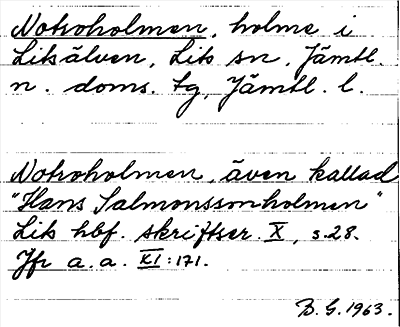 Notroholmen, holme i
Litsälven, Lits sn, Jämtl.
n. doms. tg, Jämtl. l.
Notroholmen, även kallad
"Hans Salmonssonholmen"
Lits hbf. skriftser. X, s.28.
Jfr a.a. XI:171.
B.G.1963.